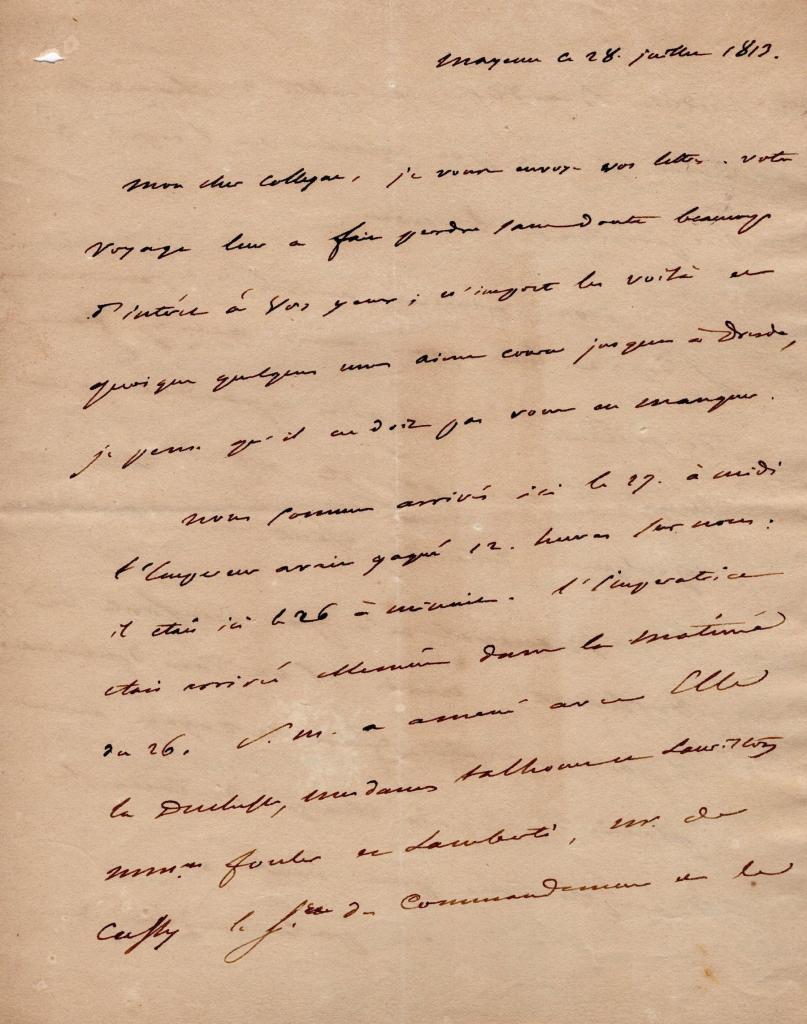 mayence ce 28. juillet 1813.
mon cher collegue, je vous envoye vos lettres. votre
voyage leur a fait perdre sans doute beaucoup
d'intérêt à vos yeux; n'importe les voilà et
quoique quelques unes aient couru jusques à Dresde,
je pense qu'il ne doit pas vous en manquer.
nous sommes arrivés ici le 27. à midi
l'Empereur avait gagné 12. heures sur nous:
il etait ici le 26 à minuit. l'Imperatrice
etait arrivée dans la matinée
du 26. S. m. a amené avec Elle
la Duchesse, mesdames talhouet et Lauriston
mm.rs fouler et Lamberti, mr. de
Cussy le S.re des Commandemens et le